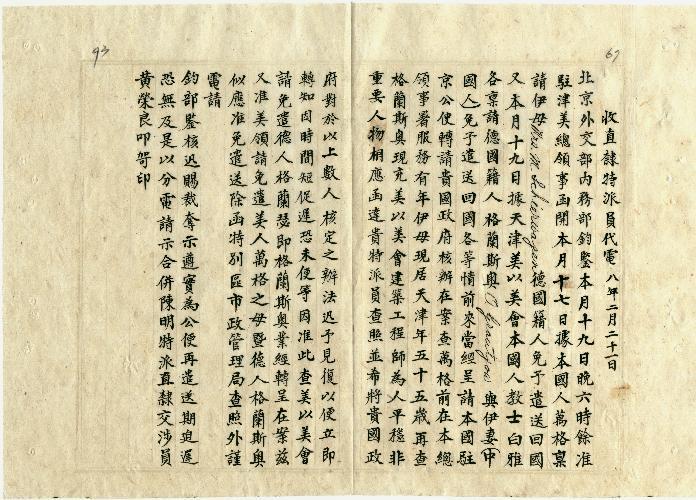 69
收直隸特派員代電 八年二月二十一日
北京外交部內務部鈞鑒本月十九日晚六時餘准
駐津美總領事函開本月十七日據本國人萬格稟
請伊母 德國籍人免予遣送回國
又本月十九日據天津美以美會本國人教士白雅
各稟請德國籍人格蘭斯奧 與伊妻(中
國人)免予遣送回國各等情前來當經呈請本國駐
京公使轉請貴國政府核辦在案查萬格前在本總
領事署服務有年伊母現居天津年五十五歲再查
格蘭斯奧現充美以美會建築工程師為人平穩非
重要人物相應函達貴特派員查照並希將貴國政
府對於以上數人核定之辦法迅予見復以便立即
轉知因時間短促遲恐未便等因准此查美以美會
請免遣德人格蘭瑟即格蘭斯奧業經轉呈在案茲
又准美領請免遣美人萬格之母暨德人格蘭斯奧
似應准免遣送除函特別區市政管理局查照外謹
電請
鈞部鑒核迅賜裁奪示遵實為公便再遣送期迫遲
恐無及是以分電請示合併陳明特派直隸交涉員
黃榮良叩箇印
93